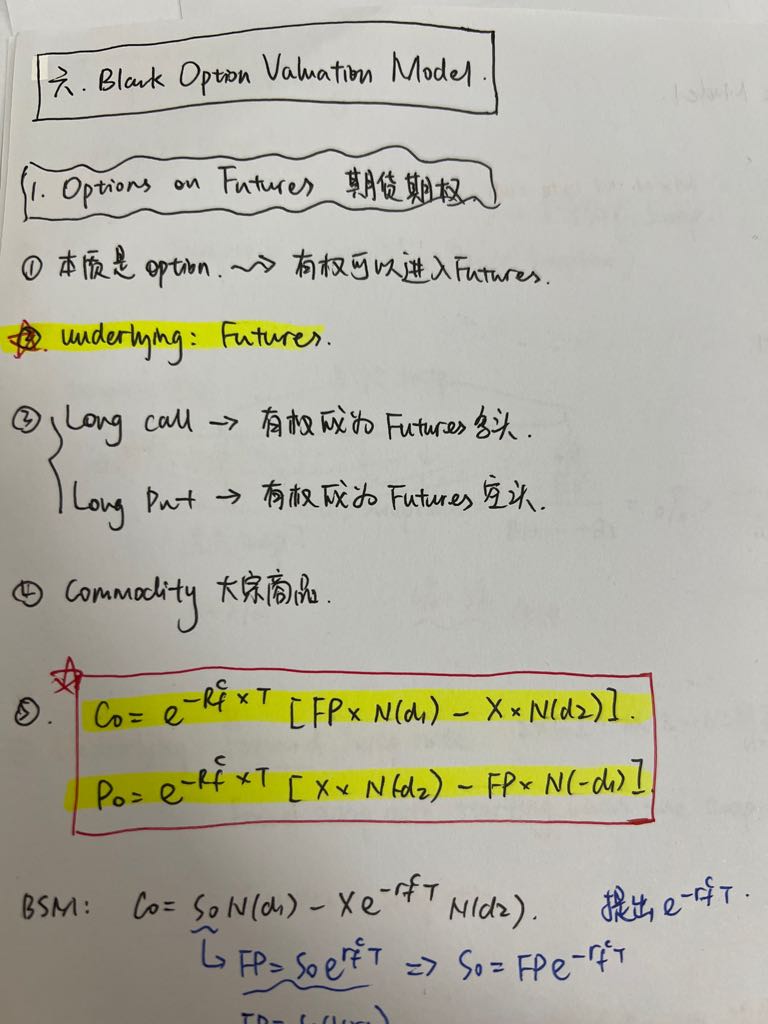 六. Black Option Valuation Model.
1. Options on Futures 期货期权
① 本质是 option. ~> 有权可以进入Futures.
②. underlying: Futures.
③ { Long call → 有权成为 Futures 多头.
Long Put → 有权成为 Futures 空头.
④ Commodity 大宗商品.
⑤. C₀ = e^{-Rf^c × T} [FP × N(d₁) - X × N(d₂)].
P₀ = e^{-Rf^c × T} [X × N(-d₂) - FP × N(-d₁)].
BSM: C₀ = S₀ N(d₁) - X e^{-rf^c T} N(d₂). 提出 e^{-rf^c T}.
↳ FP = S₀ e^{rf^c T} ⇒ S₀ = FP e^{-rf^c T}